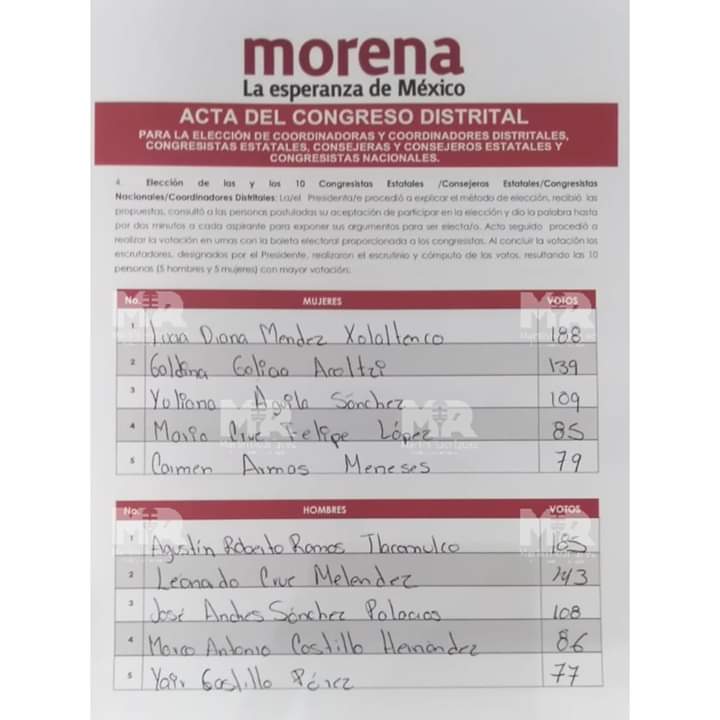 morena
La esperanza de México
ACTA DEL CONGRESO DISTRITAL
PARA LA ELECCIÓN DE COORDINADORAS Y COORDINADORES DISTRITALES,
CONGRESISTAS ESTATALES, CONSEJERAS Y CONSEJEROS ESTATALES Y
CONGRESISTAS NACIONALES.
4. Elección de las y los 10 Congresistas Estatales /Consejeros Estatales/Congresistas
Nacionales/Coordinadores Distritales: La/el Presidenta/e procedió a explicar el método de elección, recibió las
propuestas, consultó a las personas postuladas su aceptación de participar en la elección y dio la palabra hasta
por dos minutos a cada aspirante para exponer sus argumentos para ser electa/o. Acto seguido procedió a
realizar la votación en urnas con la boleta electoral proporcionada a los congresistas. Al concluir la votación los
escrutadores, designados por el Presidente, realizaron el escrutinio y cómputo de los votos, resultando las 10
personas (5 hombres y 5 mujeres) con mayor votación:
No. MUJERES VOTOS
1 Diana Mendez Xolaltenco 188
2 139
3 Yuliana Aguila Sánchez 109
4 Maria Cruz Felipe López 85
5 Carmen Armas Meneses 79
No. HOMBRES VOTOS
1 Agustín Roberto Ramos 185
2 Leonardo Cruz Melendez 143
3 José Andres Sánchez Palacios 108
4 Marco Antonio Castillo Hernández 86
5 Yair Castillo Pérez 77
MR